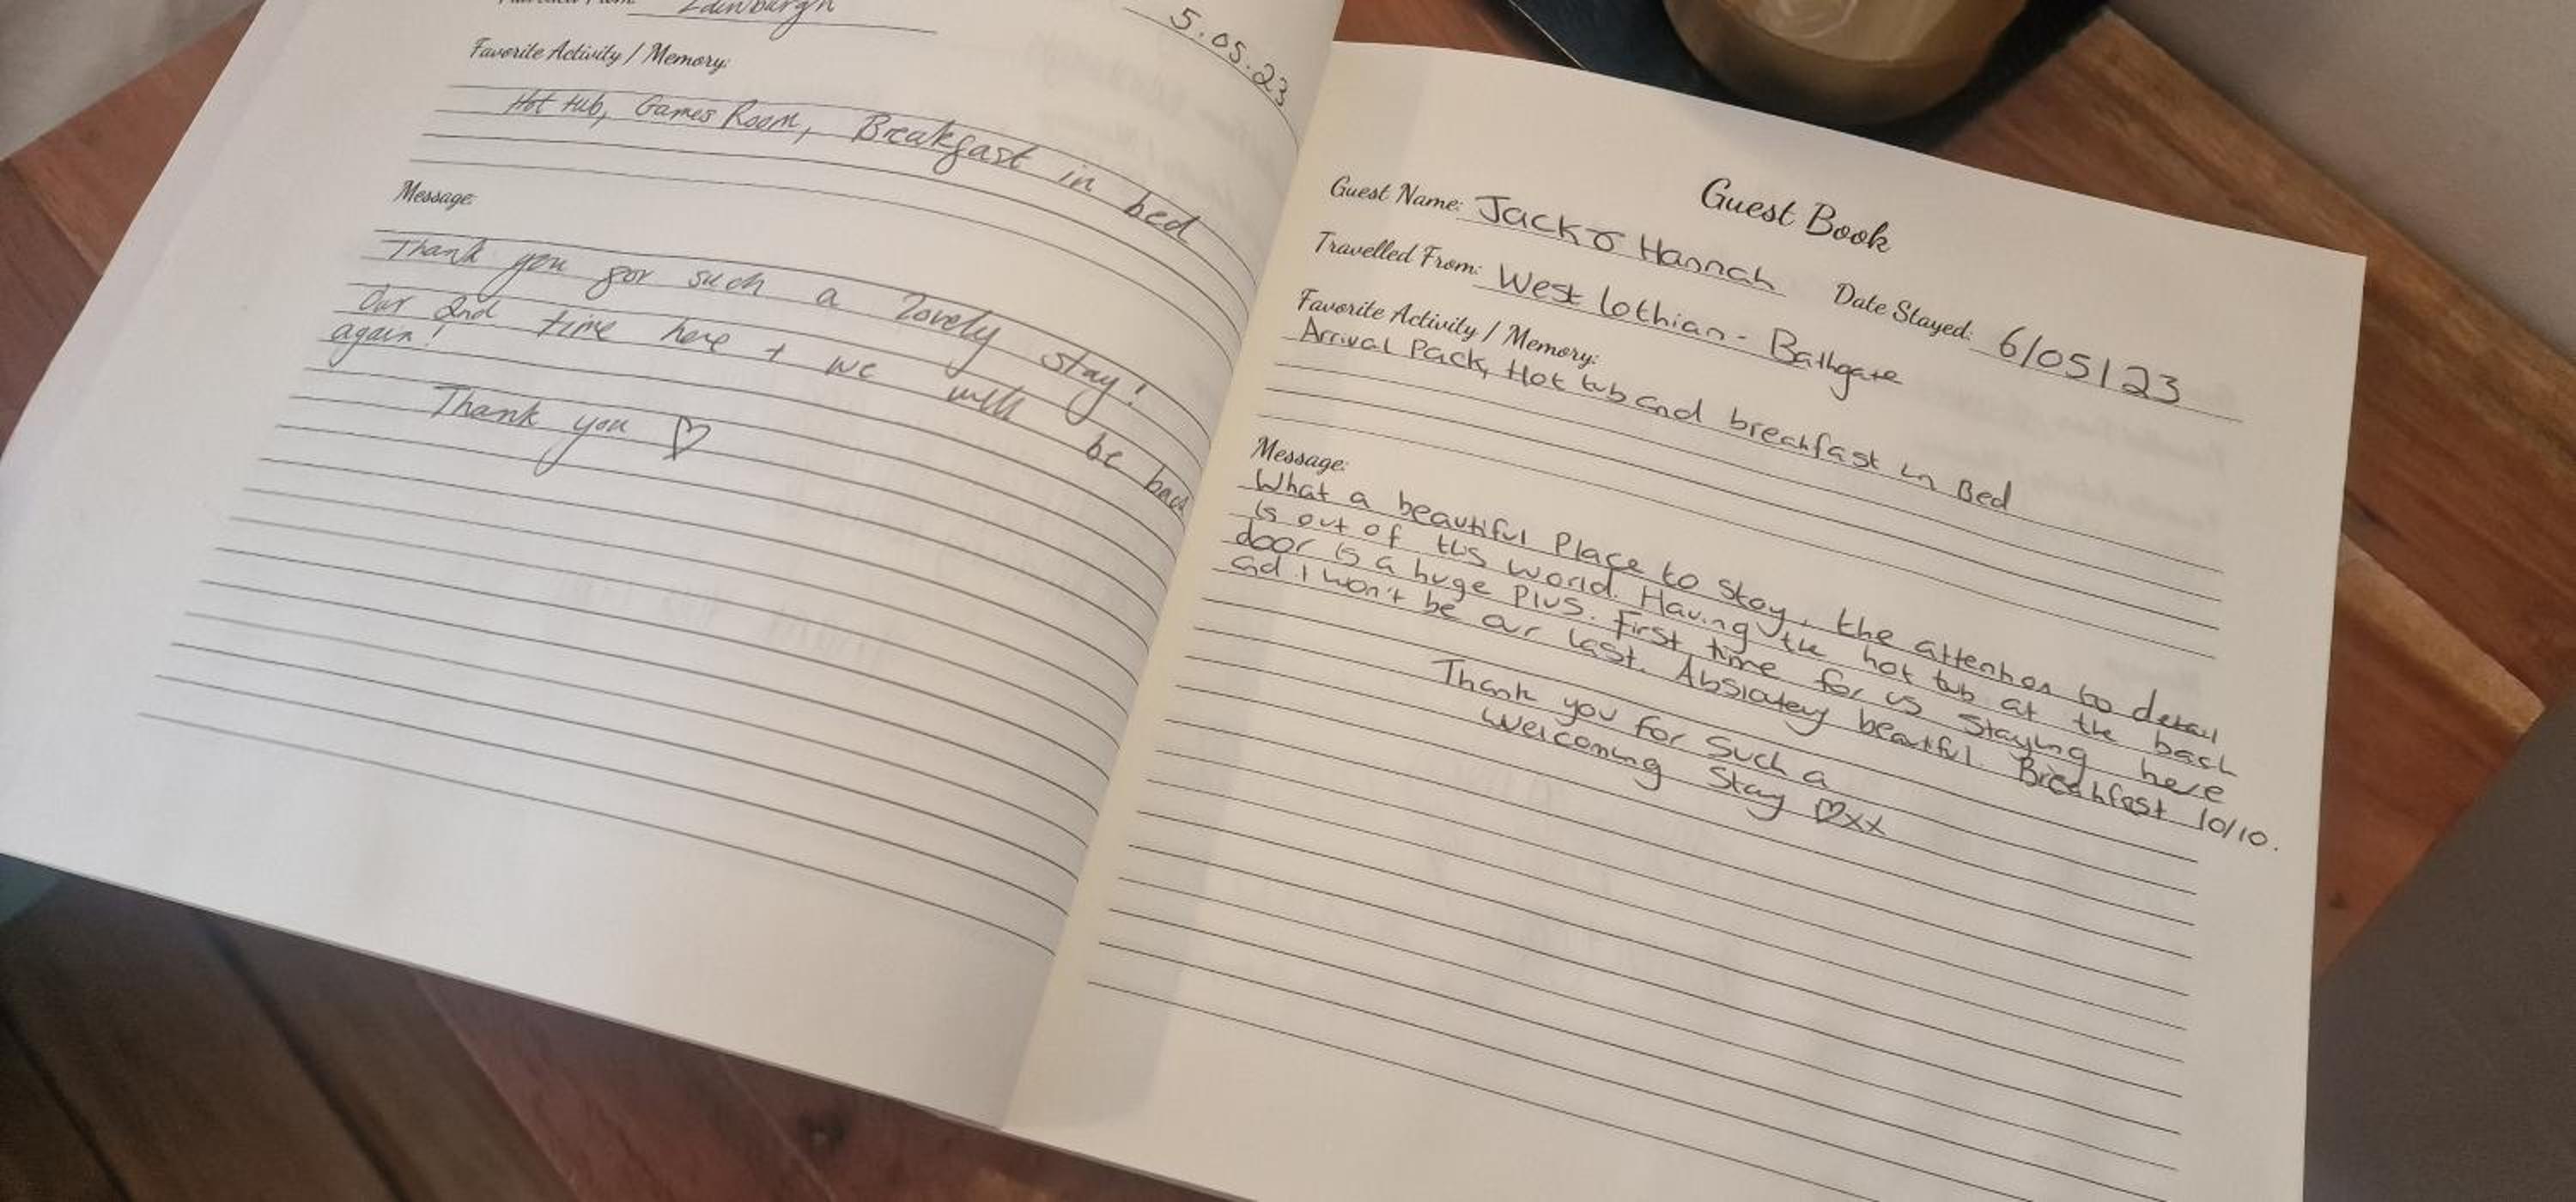 Travelled From: Edinburgh
5.05.23
Favorite Activity / Memory:
Hot tub, Games Room, Breakfast in bed
Message:
Thank you for such a lovely stay!
Our 2nd time here + we will be back
again!
Thank you ♡
Guest Book
Guest Name: Jack & Hannah Date Stayed: 6/05/23
Travelled From: West Lothian - Bathgate
Favorite Activity / Memory:
Arrival Pack, Hot tub and breakfast in Bed
Message:
What a beautiful Place to stay, the attention to detail
is out of this world. Having the hot tub at the back
door is a huge Plus. First time for us Staying here
ad i won't be our last. Absloutey beatiful. Breakfast 10/10.
Thank you for Such a
welcoming Stay ♡xx